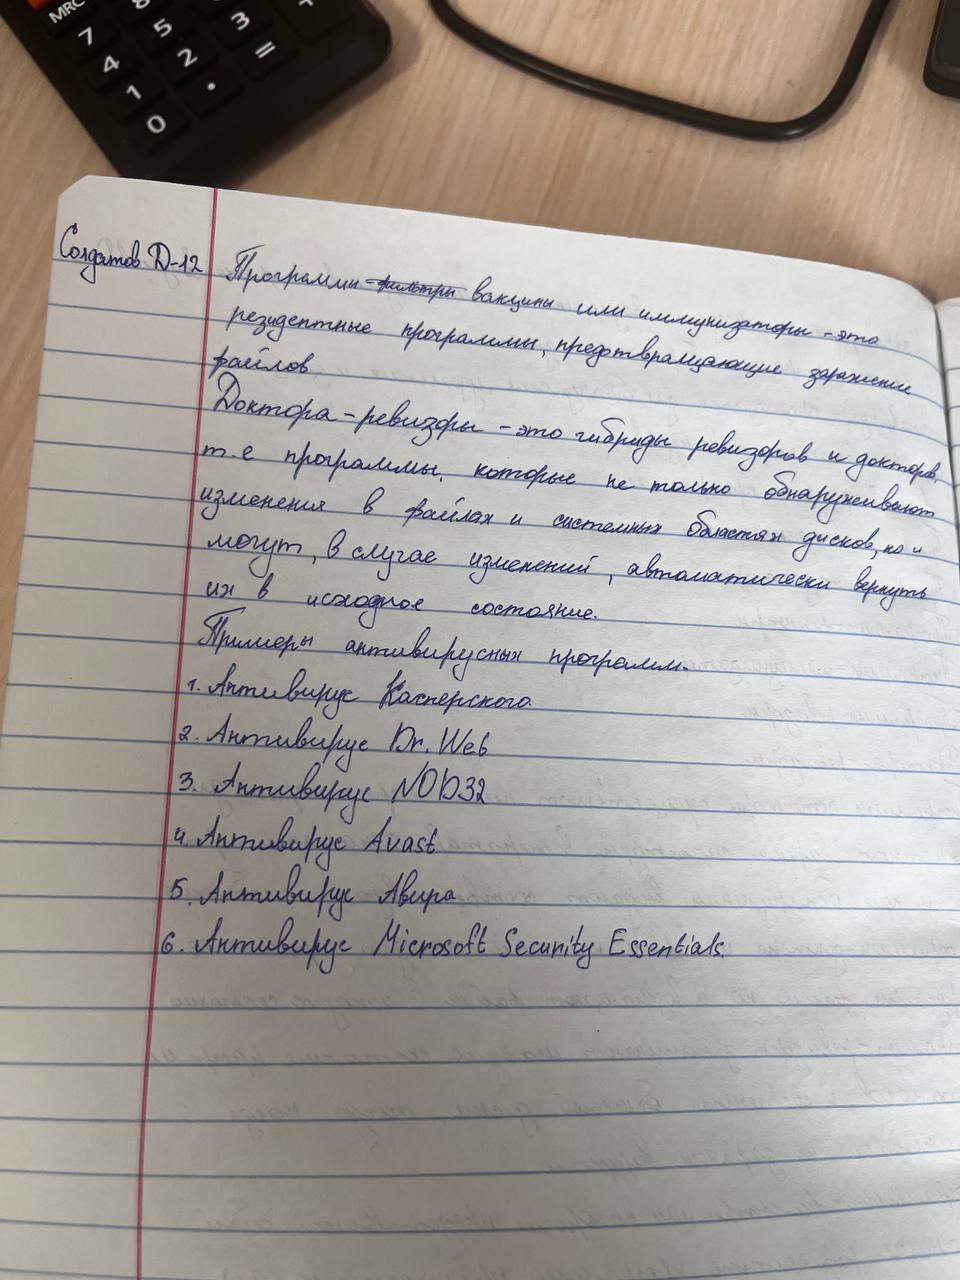 MRC 8
7 5
4 2 3
1 . =
0
Солдатов Д-12
Программы-фильтры вакцины или иммунизаторы - это
резидентные программы, предотвращающие заражение
файлов
Доктора-ревизоры - это гибриды ревизоров и докторов,
т.е программы, которые не только обнаруживают
изменения в файлах и системных областях дисков, но и
могут, в случае изменений, автоматически вернуть
их в исходное состояние.
Примеры антивирусных программ.
1. Антивирус Касперского.
2. Антивирус Dr. Web
3. Антивирус NOD32
4. Антивирус Avast
5. Антивирус Авира
6. Антивирус Microsoft Security Essentials.